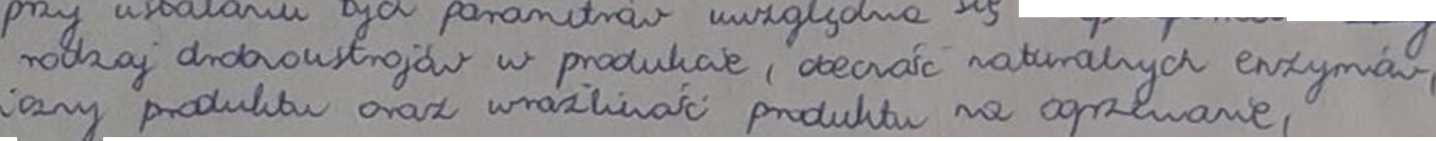 przy ustalaniu tych parametrów uwzględnia się
rodzaj drobnoustrojów w produkcie, obecność naturalnych enzymów,
iczny produktu oraz wrażliwość produktu na ogrzewanie,